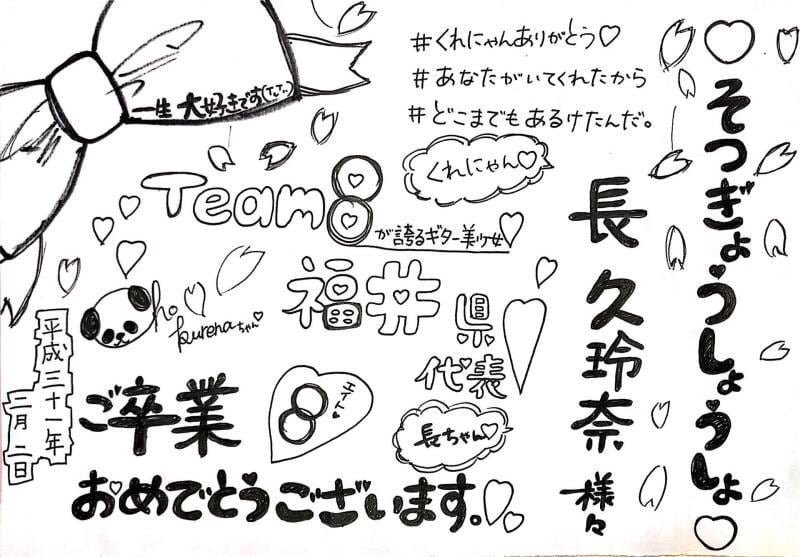 ♡そつぎょうしょうしょ♡
長久玲奈様々
#くれにゃんありがとう♡
#あなたがいてくれたから
#どこまでもあるけたんだ。
くれにゃん♡
一生大好きです
Team8
が誇るギター美少女
福井県
代表
kurenaちゃん
ご卒業
エイト
8
長ちゃん♡
おめでとうございます。
平成三十一年
二月二日